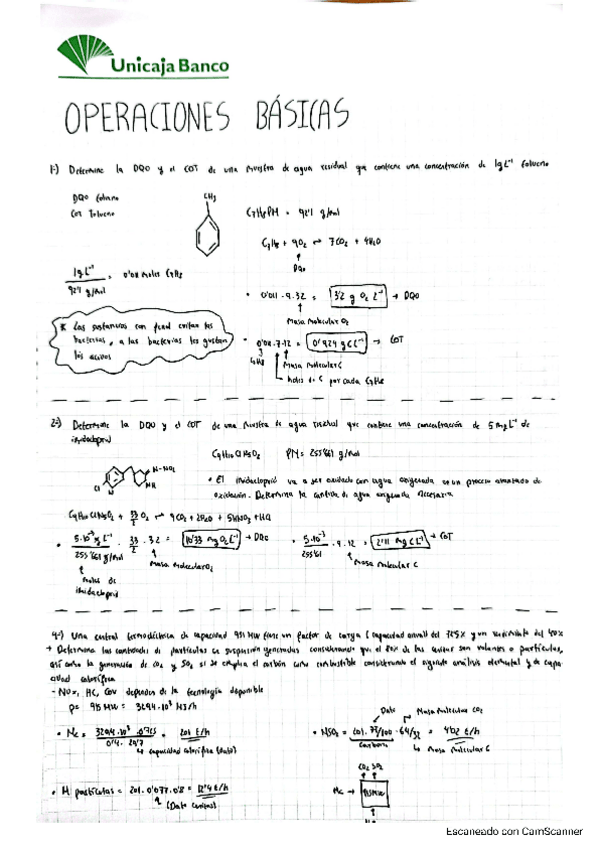 Unicaja Banco
OPERACIONES BÁSICAS
1-) Determine la DQO y el COT de una muestra de agua residual que contiene una concentración de 1g L⁻¹ tolueno
DQO tolueno
COT Tolueno
CH₃
C₇H₈ PM = 92'1 g/mol
C₇H₈ + 9O₂ → 7CO₂ + 4H₂O
DQO
1g L⁻¹
92'1 g/mol
= 0'011 moles C₇H₈
• 0'011 · 9 · 32 = 3'2 g O₂ L⁻¹ → DQO
Masa molecular O₂
* Las sustancias con fenol evitan las
bacterias, a las bacterias les gustan
los
• 0'011 · 7 · 12 = 0'924 g C L⁻¹ → COT
C₇H₈
Masa molecular C
moles de C por cada C₇H₈
2-) Determine la DQO y el COT de una muestra de agua residual que contiene una concentración de 5 mg L⁻¹ de
imidacloprid
C₉H₁₀ClN₅O₂ PM = 255'661 g/mol
N-NO₂
NH
Cl
N
• El imidacloprid va a ser oxidado con agua oxigenada en un proceso avanzado de
oxidación. Determina la cantidad de agua oxigenada necesaria
C₉H₁₀ClN₅O₂ + 33/2 O₂ → 9CO₂ + 2H₂O + 5HNO₃ + HCl
• 5·10⁻³ g L⁻¹ / 255'661 g/mol · 33/2 · 32 = 10'33 mg O₂ L⁻¹ → DQO
Masa molecular O₂
moles de
imidacloprid
• 5·10⁻³ / 255'661 · 9 · 12 = 2'11 mg C L⁻¹ → COT
Masa molecular C
4-) Una central termoeléctrica de capacidad MW tiene un factor de carga (capacidad anual) del 72'5% y un rendimiento del 40%
→ Determina las cantidades de partículas en suspensión generadas considerando que el de las cenizas son volantes o partículas,
así como la generación de CO₂ y SO₂ si se emplea el carbón como combustible considerando el siguiente análisis elemental y de capa-
cidad calorífica
- NOx, HC, COV dependen de la tecnología disponible
P = 915 MW = 3294·10³ MJ/h
• Mc = 3294·10³ · 0'725 / 0'4 · 29'7 = 201 t/h
capacidad calorífica (dato)
Dato
Masa molecular CO₂
• MSO₂ = 64/32 = t/h
carbono
Masa molecular C
• M partículas = 201 · 0'077 · 0'8 = 12'4 t/h
(Dato cenizas)
CO₂ SO₂
Mc →
Escaneado con CamScanner